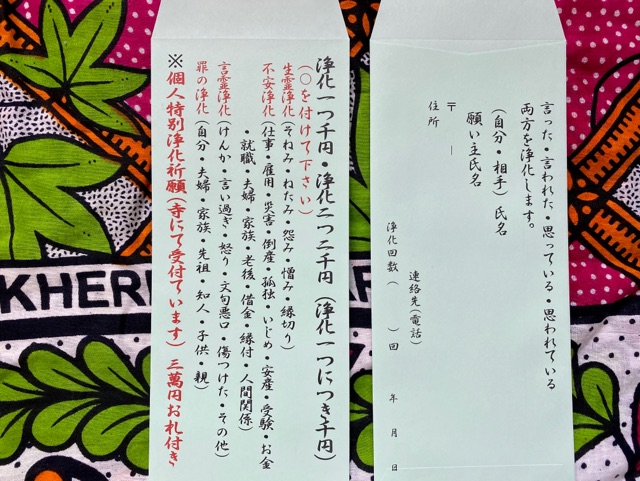 浄化一つ千円・浄化二つ二千円（浄化一つにつき千円）
（○を付けて下さい）
生霊浄化（そねみ・ねたみ・怨み・憎み・縁切り）
不安浄化（仕事・雇用・災害・倒産・孤独・いじめ・安産・受験・お金
・就職・夫婦・家族・老後・借金・縁付・人間関係）
言霊浄化（けんか・言い過ぎ・怒り・文句悪口・傷つけた・その他）
罪の浄化（自分・夫婦・家族・先祖・知人・子供・親）
※個人特別浄化祈願（寺にて受付ています）三萬円お札付き
言った・言われた・思っている・思われている
両方を浄化します。
（自分・相手）氏名
願い主氏名
〒　　－
住所
連絡先（電話）
浄化回数（　　）回　　年　月　日
KHERI